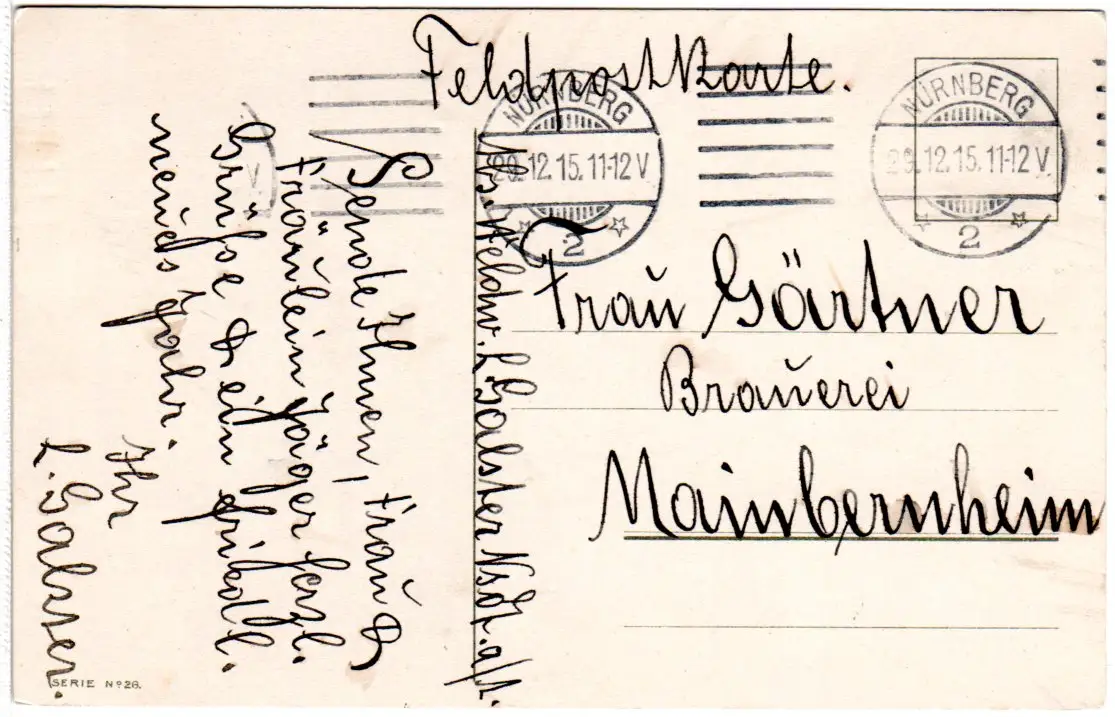 Feldpostkarte.
NÜRNBERG
29.12.15.11-12V
2
NÜRNBERG
29.12.15.11-12V.
2
V.
Frau Gärtner
Brauerei
Mainbernheim
Abs. Feldw. L. Galster Nsdt. a/A.
Sende Ihnen, Frau &
Fräulein Jäger herzl.
Grüße & ein friedl.
neues Jahr.
Ihr
L. Galster.
SERIE Nº 28.